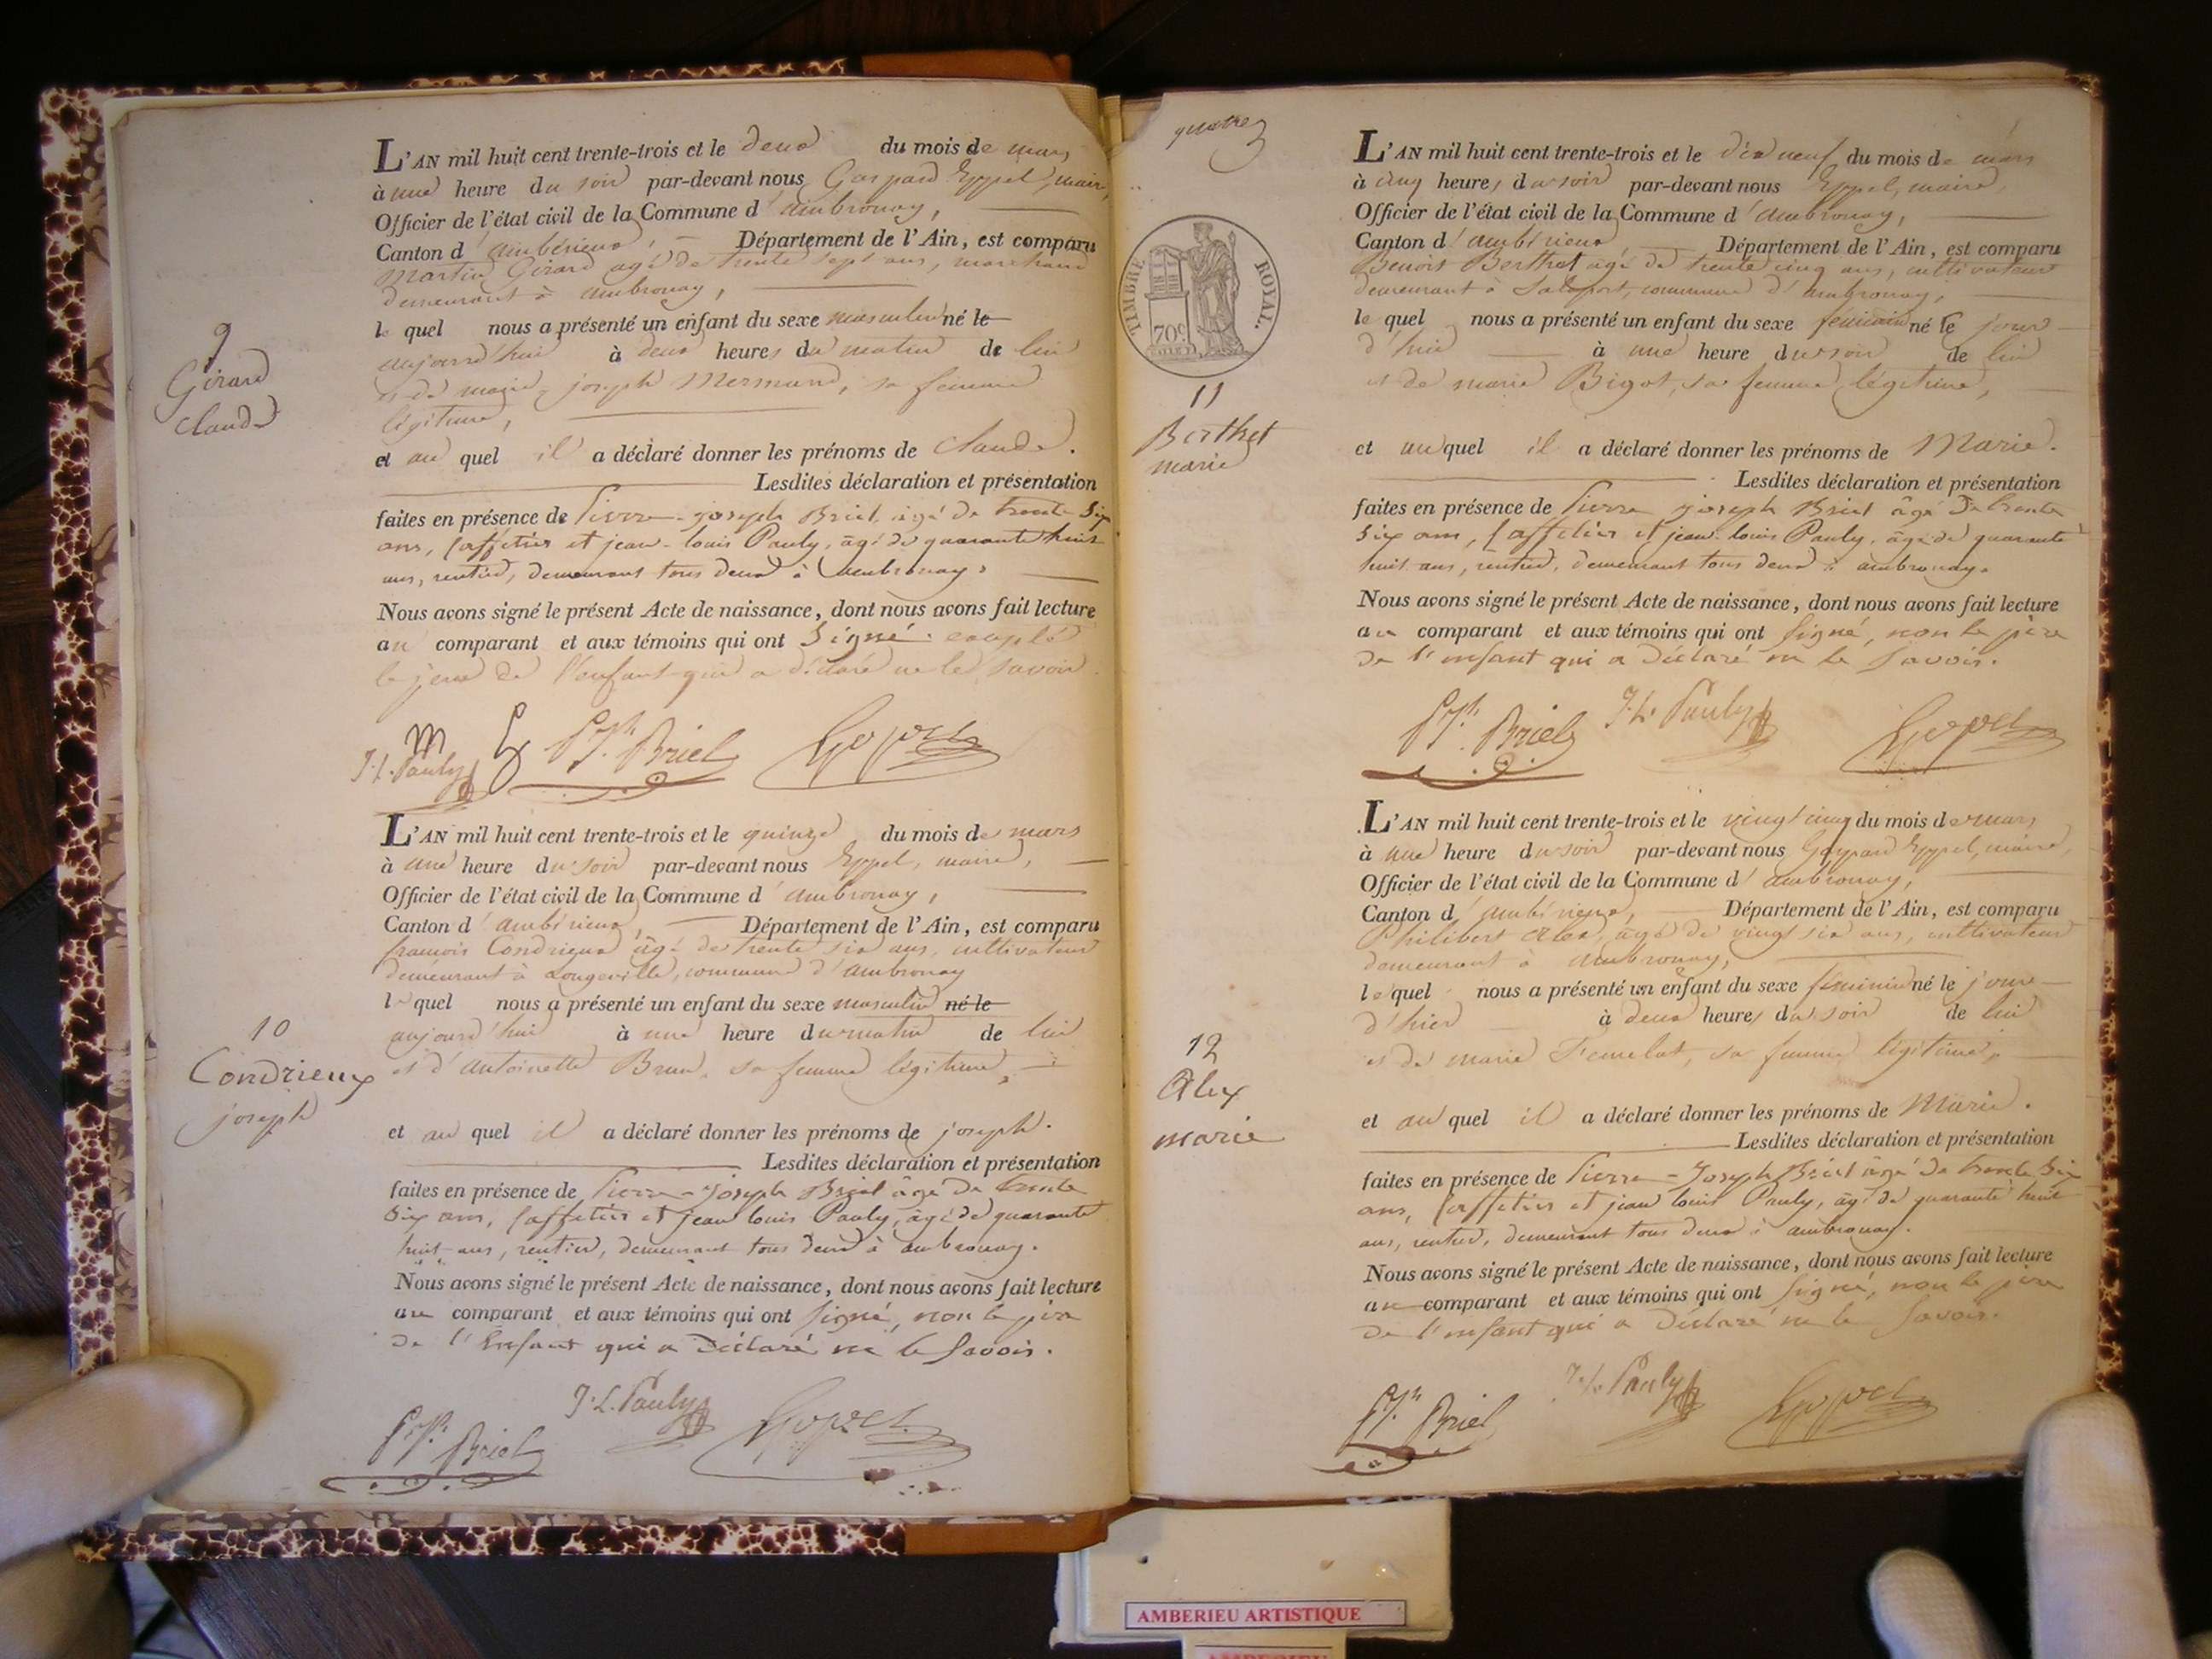 9
Girard
claude
L'AN mil huit cent trente-trois et le deux du mois de mars
à une heure du soir par-devant nous Gaspard Eyppel, maire,
Officier de l'état civil de la Commune d'ambronay,
Canton d'ambérieux, Département de l'Ain, est comparu
Martin Girard agé de trente sept ans, marchand
demeurant à ambronay,
le quel nous a présenté un enfant du sexe masculin né le
aujourd'hui à deux heures du matin de lui
et de marie joseph Mermand, sa femme
légitime,
et au quel il a déclaré donner les prénoms de claude.
Lesdites déclaration et présentation
faites en présence de Pierre-Joseph Briel âgé de trente Six
ans, Caffetier et jean-louis Pauly, âgé de quarante huit
ans, rentier, demeurant tous deux à ambronay.
Nous avons signé le présent Acte de naissance, dont nous avons fait lecture
au comparant et aux témoins qui ont Signé. excepté
le père de l'enfant qui a déclaré ne le savoir
J. L. Pauly Pre Jh. Briel
10
Condrieux
joseph
L'AN mil huit cent trente-trois et le quinze du mois de mars
à une heure du soir par-devant nous Eyppel, maire,
Officier de l'état civil de la Commune d'ambronay,
Canton d'ambérieux, Département de l'Ain, est comparu
françois Condrieux âgé de trente six ans, cultivateur
demeurant à Longeville, commune d'ambronay
le quel nous a présenté un enfant du sexe masculin né le
aujourd'hui à une heure du matin de lui
et d'antoinette Brun, sa femme légitime,
et au quel il a déclaré donner les prénoms de joseph.
Lesdites déclaration et présentation
faites en présence de Pierre-Joseph Briel âgé de trente
Six ans, Caffetier et jean louis Pauly, âgé de quarante
huit ans, rentier, demeurant tous deux à ambronay.
Nous avons signé le présent Acte de naissance, dont nous avons fait lecture
au comparant et aux témoins qui ont Signé, non le père
de l'Enfant qui a Déclaré ne le Savoir.
J. L. Pauly
Briel
quatre
TIMBRE ROYAL.
70c
11
Berthet
marie
L'AN mil huit cent trente-trois et le dix neuf du mois de mars
à cinq heures du soir par-devant nous Eyppel, maire,
Officier de l'état civil de la Commune d'ambronay,
Canton d'ambérieux, Département de l'Ain, est comparu
Benoit Berthet âgé de trente cinq ans, cultivateur
demeurant à Salaport, commune d'ambronay,
le quel nous a présenté un enfant du sexe féminin né le jour
d'hui à une heure du soir de lui
et de marie Bigot, sa femme légitime,
et auquel il a déclaré donner les prénoms de Marie.
Lesdites déclaration et présentation
faites en présence de Pierre joseph Briel âgé De trente
Six ans, Caffetier et jean-louis Pauly, âgé de quarante
huit ans, rentier, demeurant tous deux à ambronay.
Nous avons signé le présent Acte de naissance, dont nous avons fait lecture
au comparant et aux témoins qui ont Signé, non le père
de l'enfant qui a Déclaré ne le Savoir.
Briel J. L. Pauly
12
Alex
marie
L'AN mil huit cent trente-trois et le vingt cinq du mois de mars
à une heure du soir par-devant nous Gaspard Eyppel, maire,
Officier de l'état civil de la Commune d'ambronay,
Canton d'ambérieux, Département de l'Ain, est comparu
Philibert Alex, âgé de vingt six ans, cultivateur
demeurant à ambronay,
le quel nous a présenté un enfant du sexe féminin né le jour
d'hier à deux heures du soir de lui
et de marie Femelat, sa femme légitime,
et au quel il a déclaré donner les prénoms de Marie.
Lesdites déclaration et présentation
faites en présence de Pierre-Joseph Briel âgé De trente Six
ans, Caffetier et jean louis Pauly, âgé de quarante huit
ans, rentier, demeurant tous deux à ambronay.
Nous avons signé le présent Acte de naissance, dont nous avons fait lecture
au comparant et aux témoins qui ont Signé, non le père
de l'enfant qui a Déclaré ne le Savoir.
Briel J. L. Pauly
AMBERIEU ARTISTIQUE
AMBERIEU